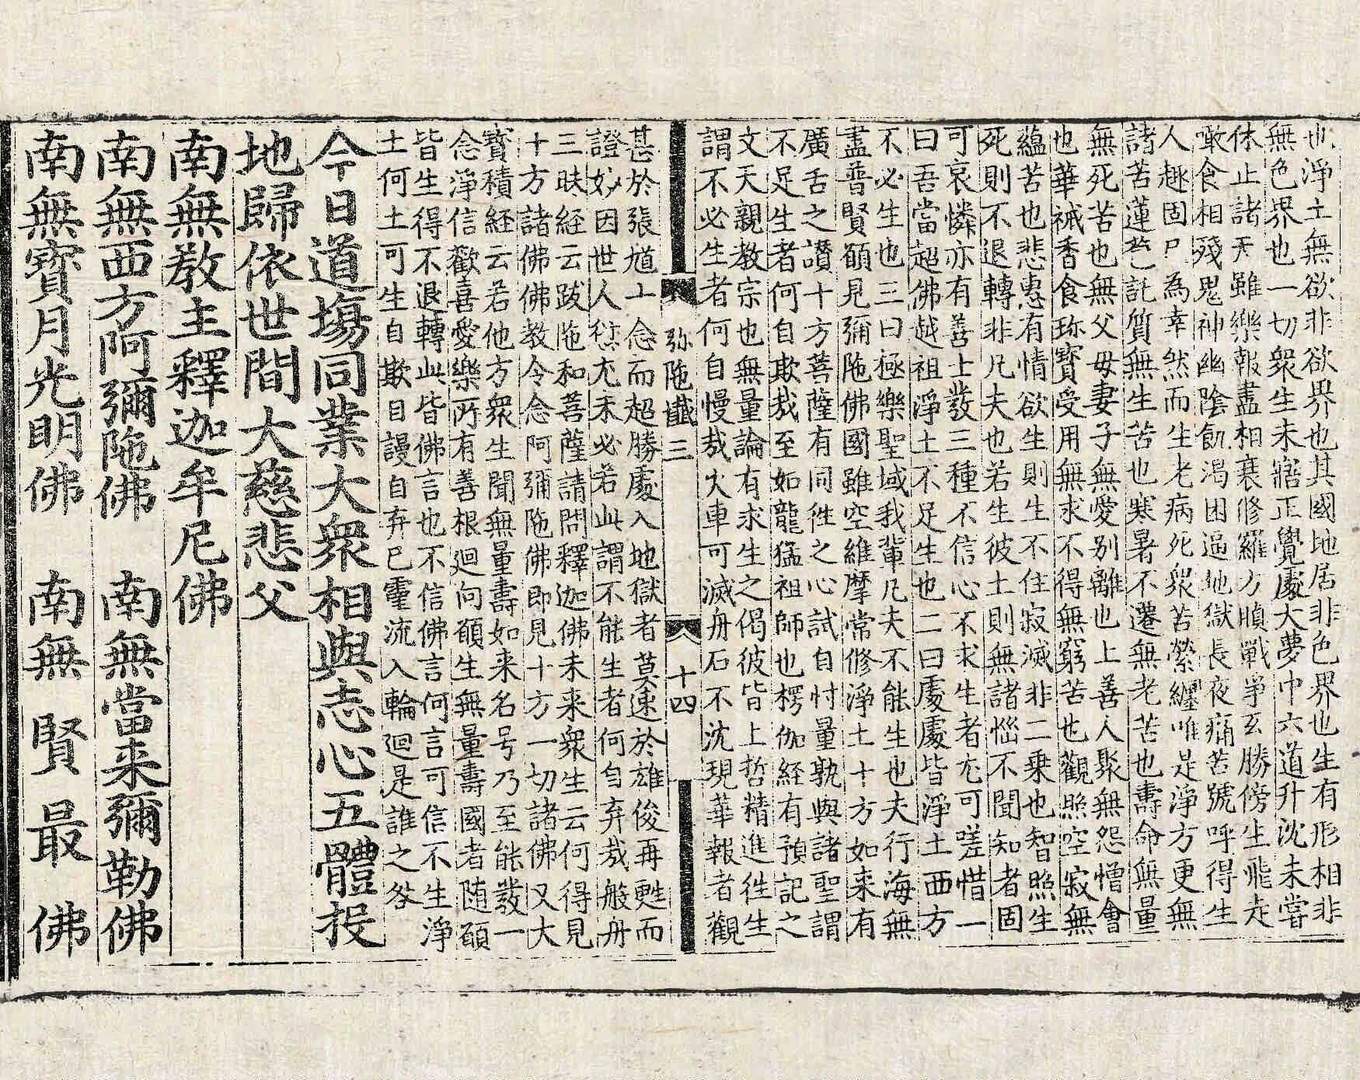 也淨土無欲非欲界也其國地居非色界也生有形相非
無色界也一切衆生未寤正覺處大夢中六道升沈未嘗
休止諸天雖樂報盡相衰修羅方瞋戰爭互勝傍生飛走
噉食相殘鬼神幽陰飢渴困逼地獄長夜痛苦號呼得生
人趣固已為幸然而生老病死衆苦縈纏唯是淨方更無
諸苦蓮苞託質無生苦也寒暑不遷無老苦也壽命無量
無死苦也無父母妻子無愛別離也上善人聚無怨憎會
也華裓香食珎寶受用無求不得無窮苦也觀照空寂無
蘊苦也悲恵有情欲生則生不住寂滅非二乗也智照生
死則不退轉非凡夫也若生彼土則無諸惱不聞知者固
可哀憐亦有善士發三種不信心不求生者尤可嗟惜一
曰吾當超佛越祖淨土不足生也二曰處處皆淨土西方
不必生也三曰極樂聖域我輩凡夫不能生也夫行海無
盡普賢願見彌陁佛國雖空維摩常修淨土十方如来有
廣舌之讚十方菩薩有同徃之心試自忖量孰與諸聖謂
不足生者何自欺㢤至如龍猛祖師也楞伽経有預記之
文天親教宗也無量論有求生之偈彼皆上哲精進徃生
謂不必生者何自慢㢤火車可滅舟石不沈現華報者觀
弥陁懴三
十四
甚於張馗十念而超勝處入地獄者莫速於雄俊再甦而
證妙因世人愆尤未必若此謂不能生者何自弃㢤般舟
三昧経云跋陁和菩薩請問釋迦佛未来衆生云何得見
十方諸佛佛教令念阿彌陁佛即見十方一切諸佛又大
寳積経云若他方衆生聞無量壽如来名号乃至能發一
念淨信歡喜愛樂所有善根廻向願生無量壽國者随願
皆生得不退轉此皆佛言也不信佛言何言可信不生淨
土何土可生自欺自謾自弃己靈流入輪廻是誰之咎
今日道塲同業大衆相與志心五體投
地歸依世間大慈悲父
南無教主釋迦牟尼佛
南無西方阿彌陁佛　南無當来彌勒佛
南無寶月光明佛　南無賢最佛